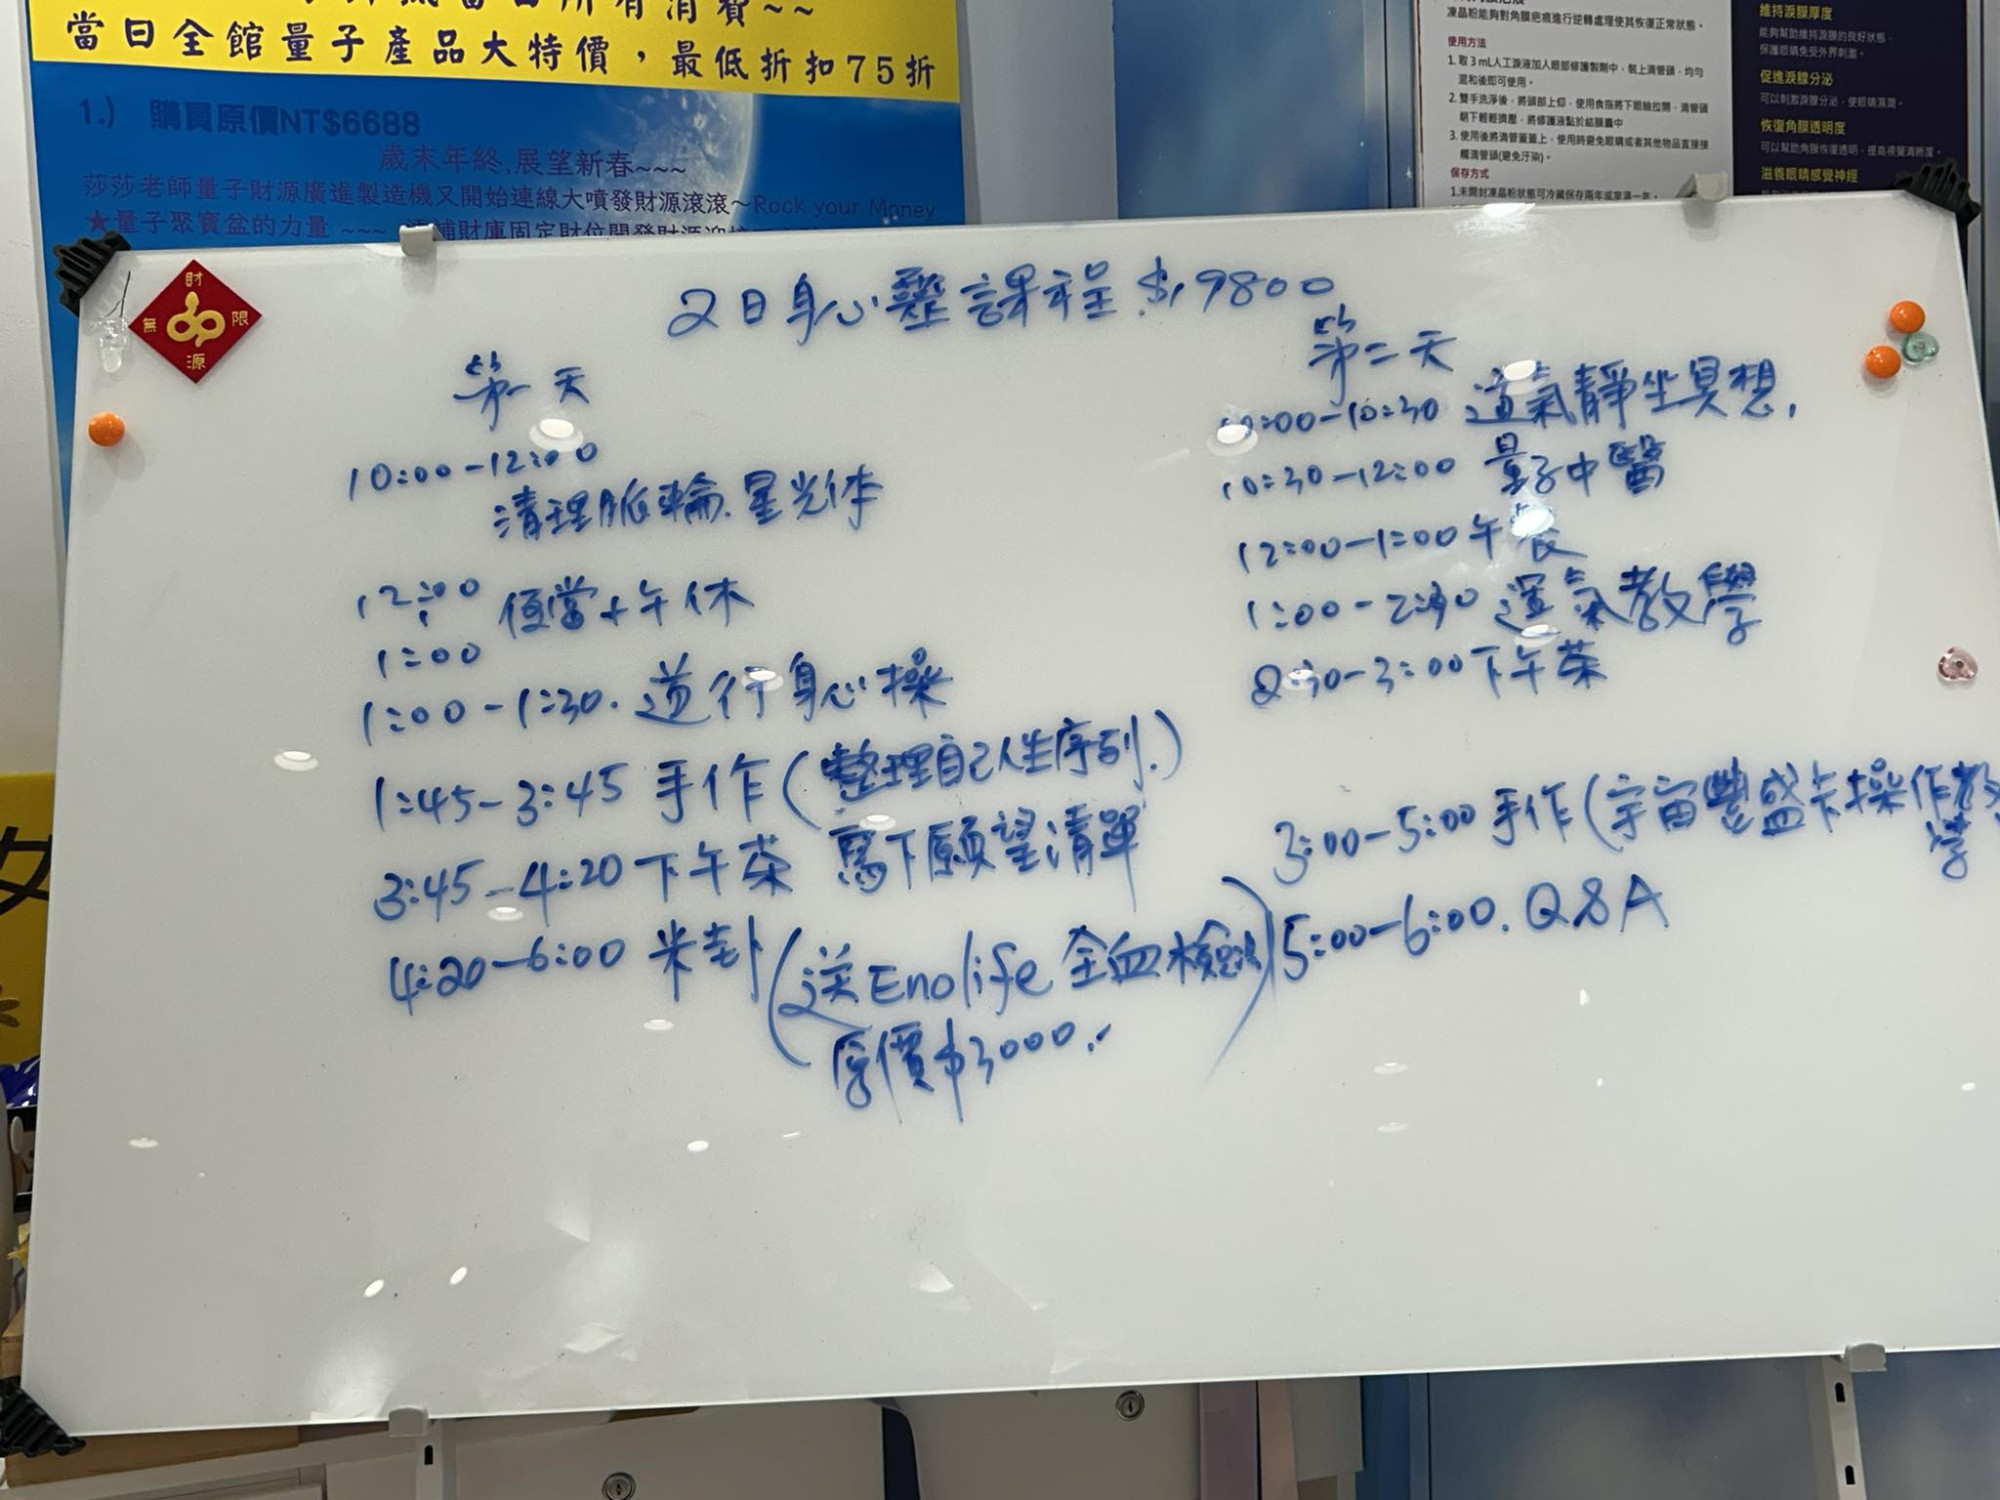 當日全館量子產品大特價，最低折扣75折
1.) 購買原價NT$6688
歲末年終,展望新春~~~
莎莎老師量子財源廣進製造機又開始連線大噴發財源滾滾~Rock your Money
★量子聚寶盆的力量 ~~~
凍晶粉能夠對角膜疤痕進行逆轉處理使其恢復正常狀態。
使用方法
1. 取3 mL人工淚液加入眼部修護製劑中，裝上滴管頭，均勻
混和後即可使用。
2. 雙手洗淨後，將頭部上仰，使用食指將下眼瞼拉開，滴管頭
朝下輕輕擠壓，將修護液點於結膜囊中
3. 使用後將滴管蓋蓋上，使用時避免眼睛或者其他物品直接接
觸滴管頭(避免汙染)。
保存方式
1.未開封凍晶粉狀態可冷藏保存兩年或室溫一年。
維持淚膜厚度
能夠幫助維持淚膜的良好狀態，
保護眼睛免受外界刺激。
促進淚腺分泌
可以刺激淚腺分泌，使眼睛濕潤。
恢復角膜透明度
可以幫助角膜恢復透明，提高視覺清晰度。
滋養眼睛感覺神經
財
無 限
源
2日身心靈課程 $9800
第一天
10:00-12:00
清理脈輪.星光体
12:00
1:00 便當+午休
1:00-1:30. 道行身心操
1:45-3:45 手作(整理自己人生序列.)
3:45-4:20 下午茶 寫下願望清單
4:20-6:00 米卦(送Enolife全血檢測)
原價$3000.
第二天
10:00-10:30 道氣靜坐冥想,
10:30-12:00 量子中醫
12:00-1:00 午餐
1:00-2:30 運氣教學
2:30-3:00 下午茶
3:00-5:00 手作(宇宙豐盛卡操作教
學
5:00-6:00. Q&A